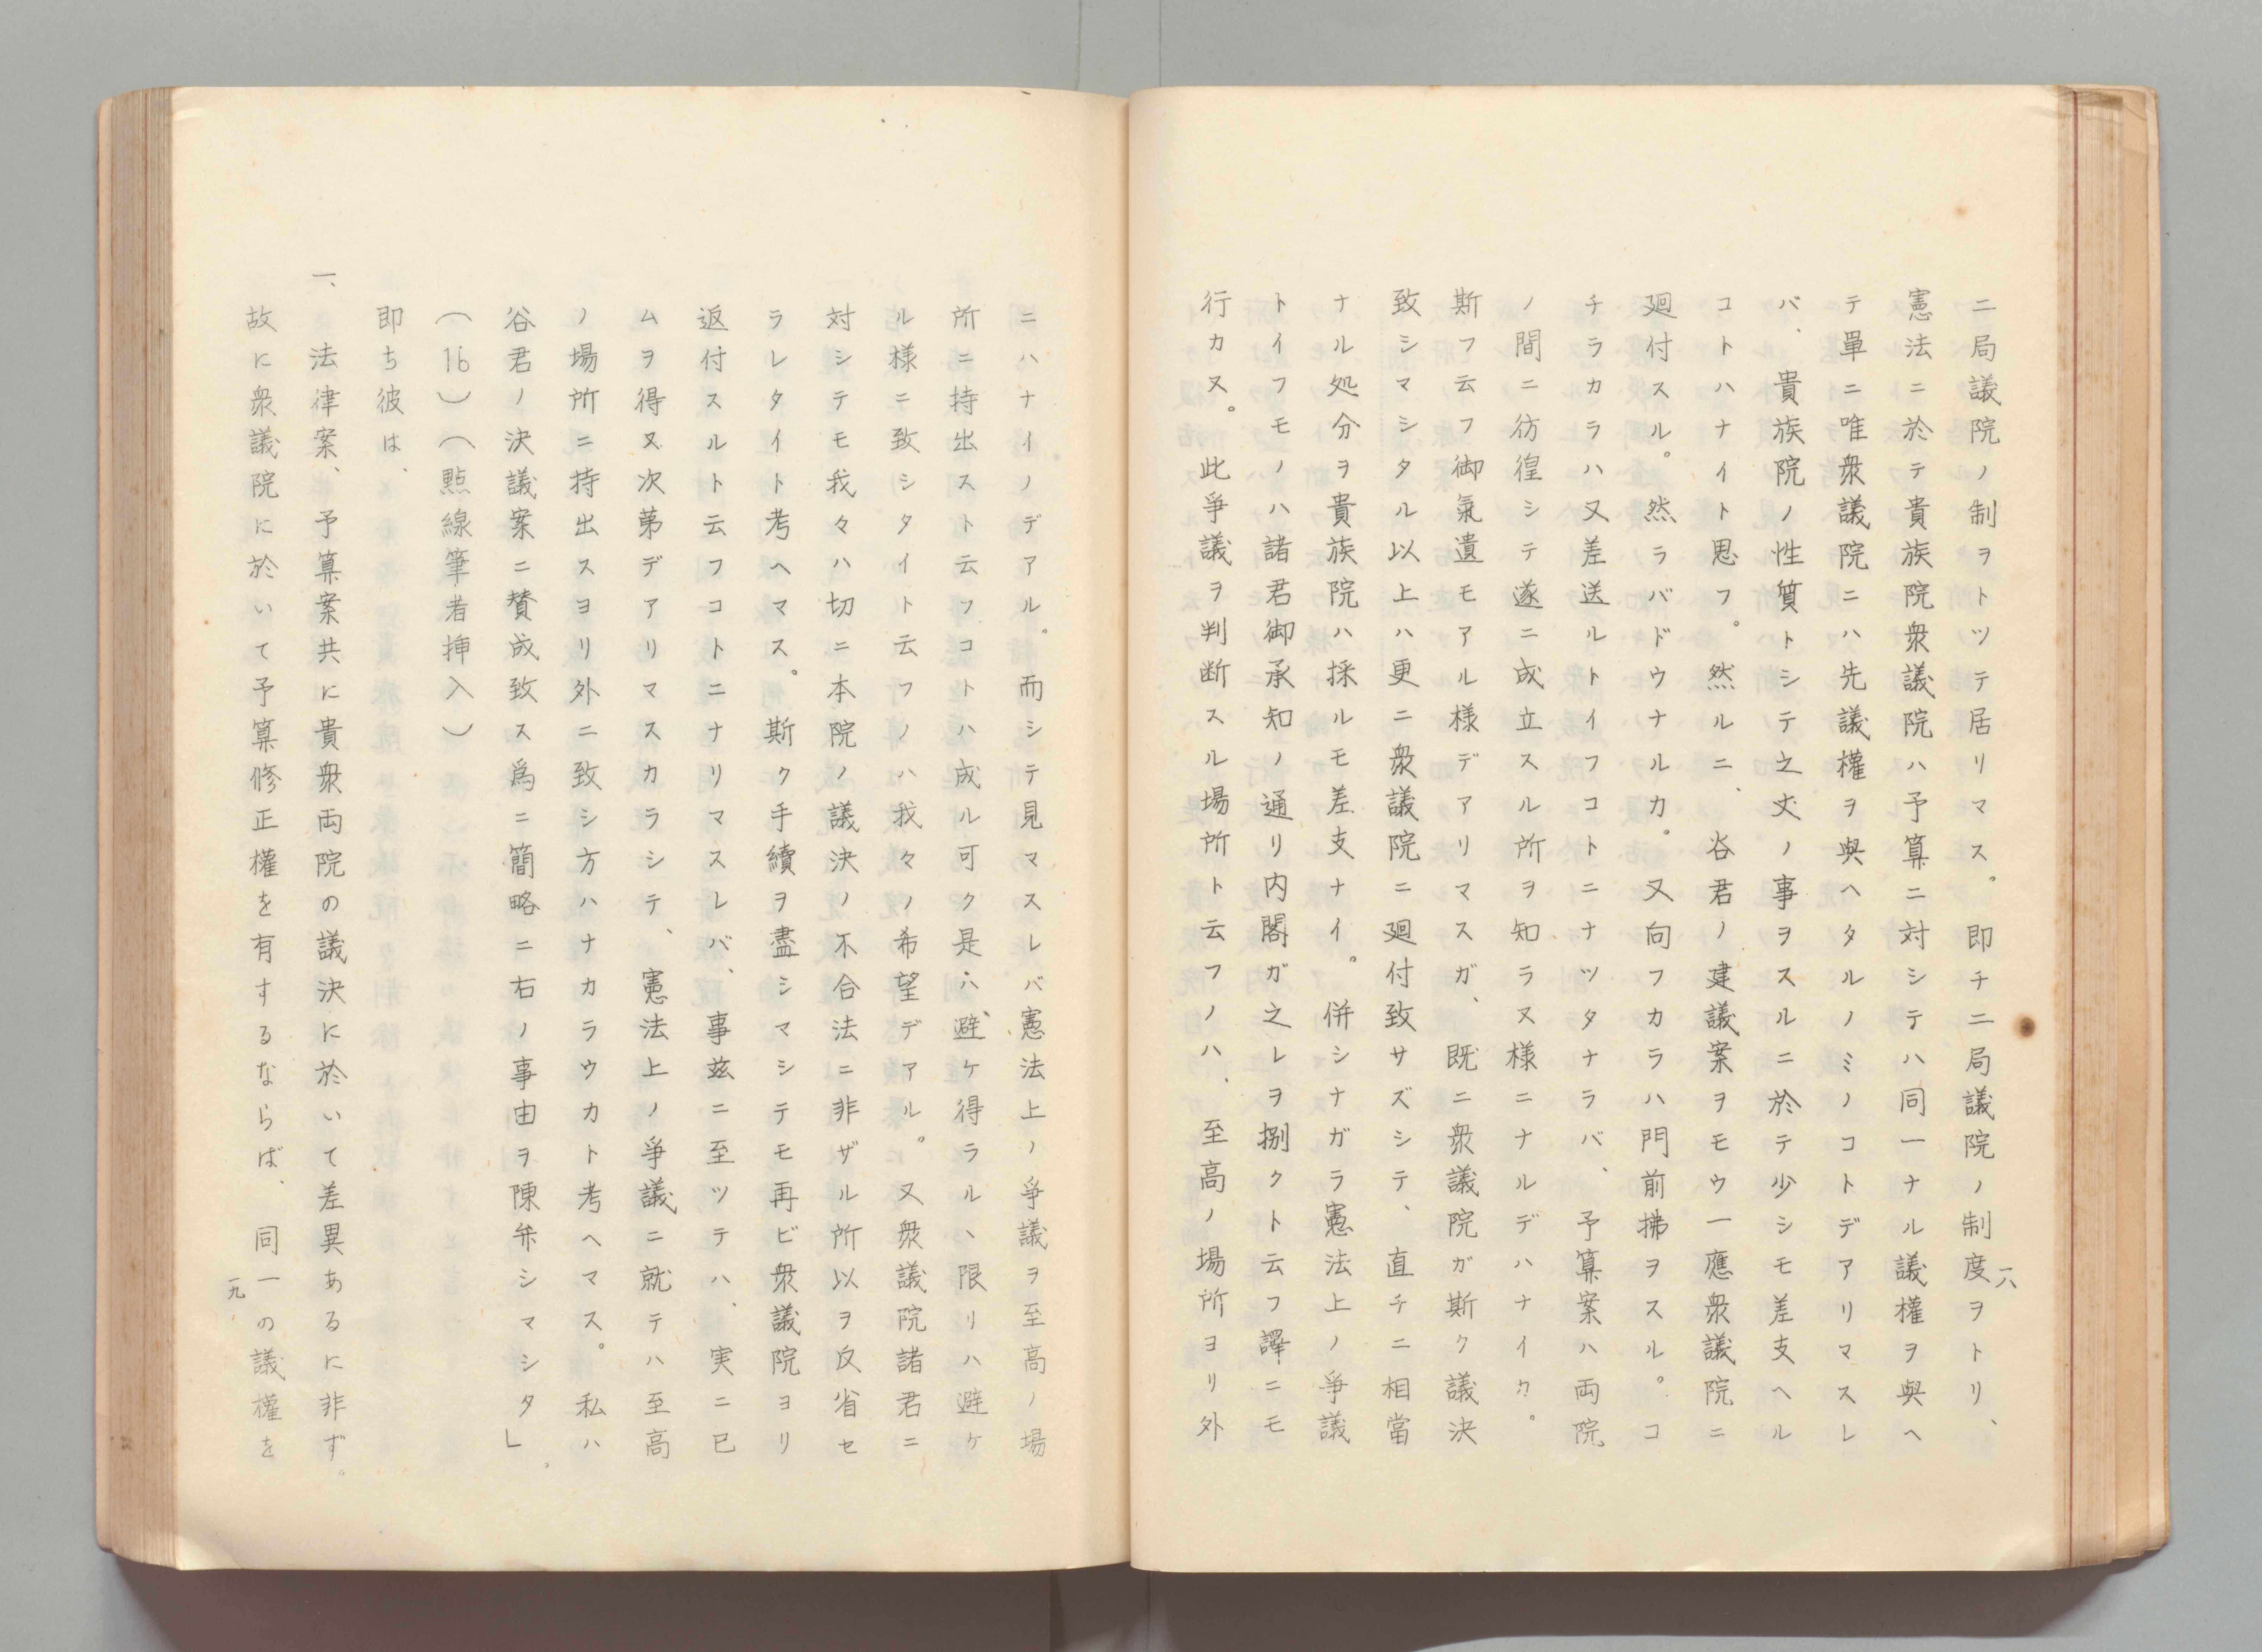 二局議院ノ制ヲトツテ居リマス。即チ二局議院ノ制度ヲトリ、
憲法ニ於テ貴族院衆議院ハ予算ニ対シテハ同一ナル議權ヲ與ヘ
テ單ニ唯衆議院ニハ先議權ヲ與ヘタルノミノコトデアリマスレ
バ、貴族院ノ性質トシテ之丈ノ事ヲスルニ於テ少シモ差支ヘル
コトハナイト思フ。然ルニ、谷君ノ建議案ヲモウ一應衆議院ニ
廻付スル。然ラバドウナルカ。又向フカラハ門前拂ヲスル。コ
チラカラハ又差送ルトイフコトニナツタナラバ、予算案ハ両院
ノ間ニ彷徨シテ遂ニ成立スル所ヲ知ラヌ様ニナルデハナイカ。
斯フ云フ御氣遣モアル様デアリマスガ、既ニ衆議院ガ斯ク議決
致シマシタル以上ハ更ニ衆議院ニ廻付致サズシテ、直チニ相當
ナル処分ヲ貴族院ハ採ルモ差支ナイ。併シナガラ憲法上ノ爭議
トイフモノハ諸君御承知ノ通リ内閣ガ之レヲ捌クト云フ譯ニモ
行カヌ。此爭議ヲ判断スル場所ト云フノハ、至高ノ場所ヨリ外
一八
ニハナイノデアル。而シテ見マスレバ憲法上ノ爭議ヲ至高ノ場
所ニ持出スト云フコトハ成ル可ク是ハ、避ケ得ラルヽ限リハ避ケ
ル様ニ致シタイト云フノハ我々ノ希望デアル。又衆議院諸君ニ
対シテモ我々ハ切ニ本院ノ議決ノ不合法ニ非ザル所以ヲ反省セ
ラレタイト考ヘマス。斯ク手續ヲ盡シマシテモ再ビ衆議院ヨリ
返付スルト云フコトニナリマスレバ、事茲ニ至ツテハ、実ニ已
ムヲ得ヌ次第デアリマスカラシテ、憲法上ノ爭議ニ就テハ至高
ノ場所ニ持出スヨリ外ニ致シ方ハナカラウカト考ヘマス。私ハ
谷君ノ決議案ニ賛成致ス爲ニ簡略ニ右ノ事由ヲ陳弁シマシタ」。
(16)(點線筆者挿入)
即ち彼は、
一、法律案、予算案共に貴衆両院の議決に於いて差異あるに非ず。
故に衆議院に於いて予算修正權を有するならば、同一の議權を
一九